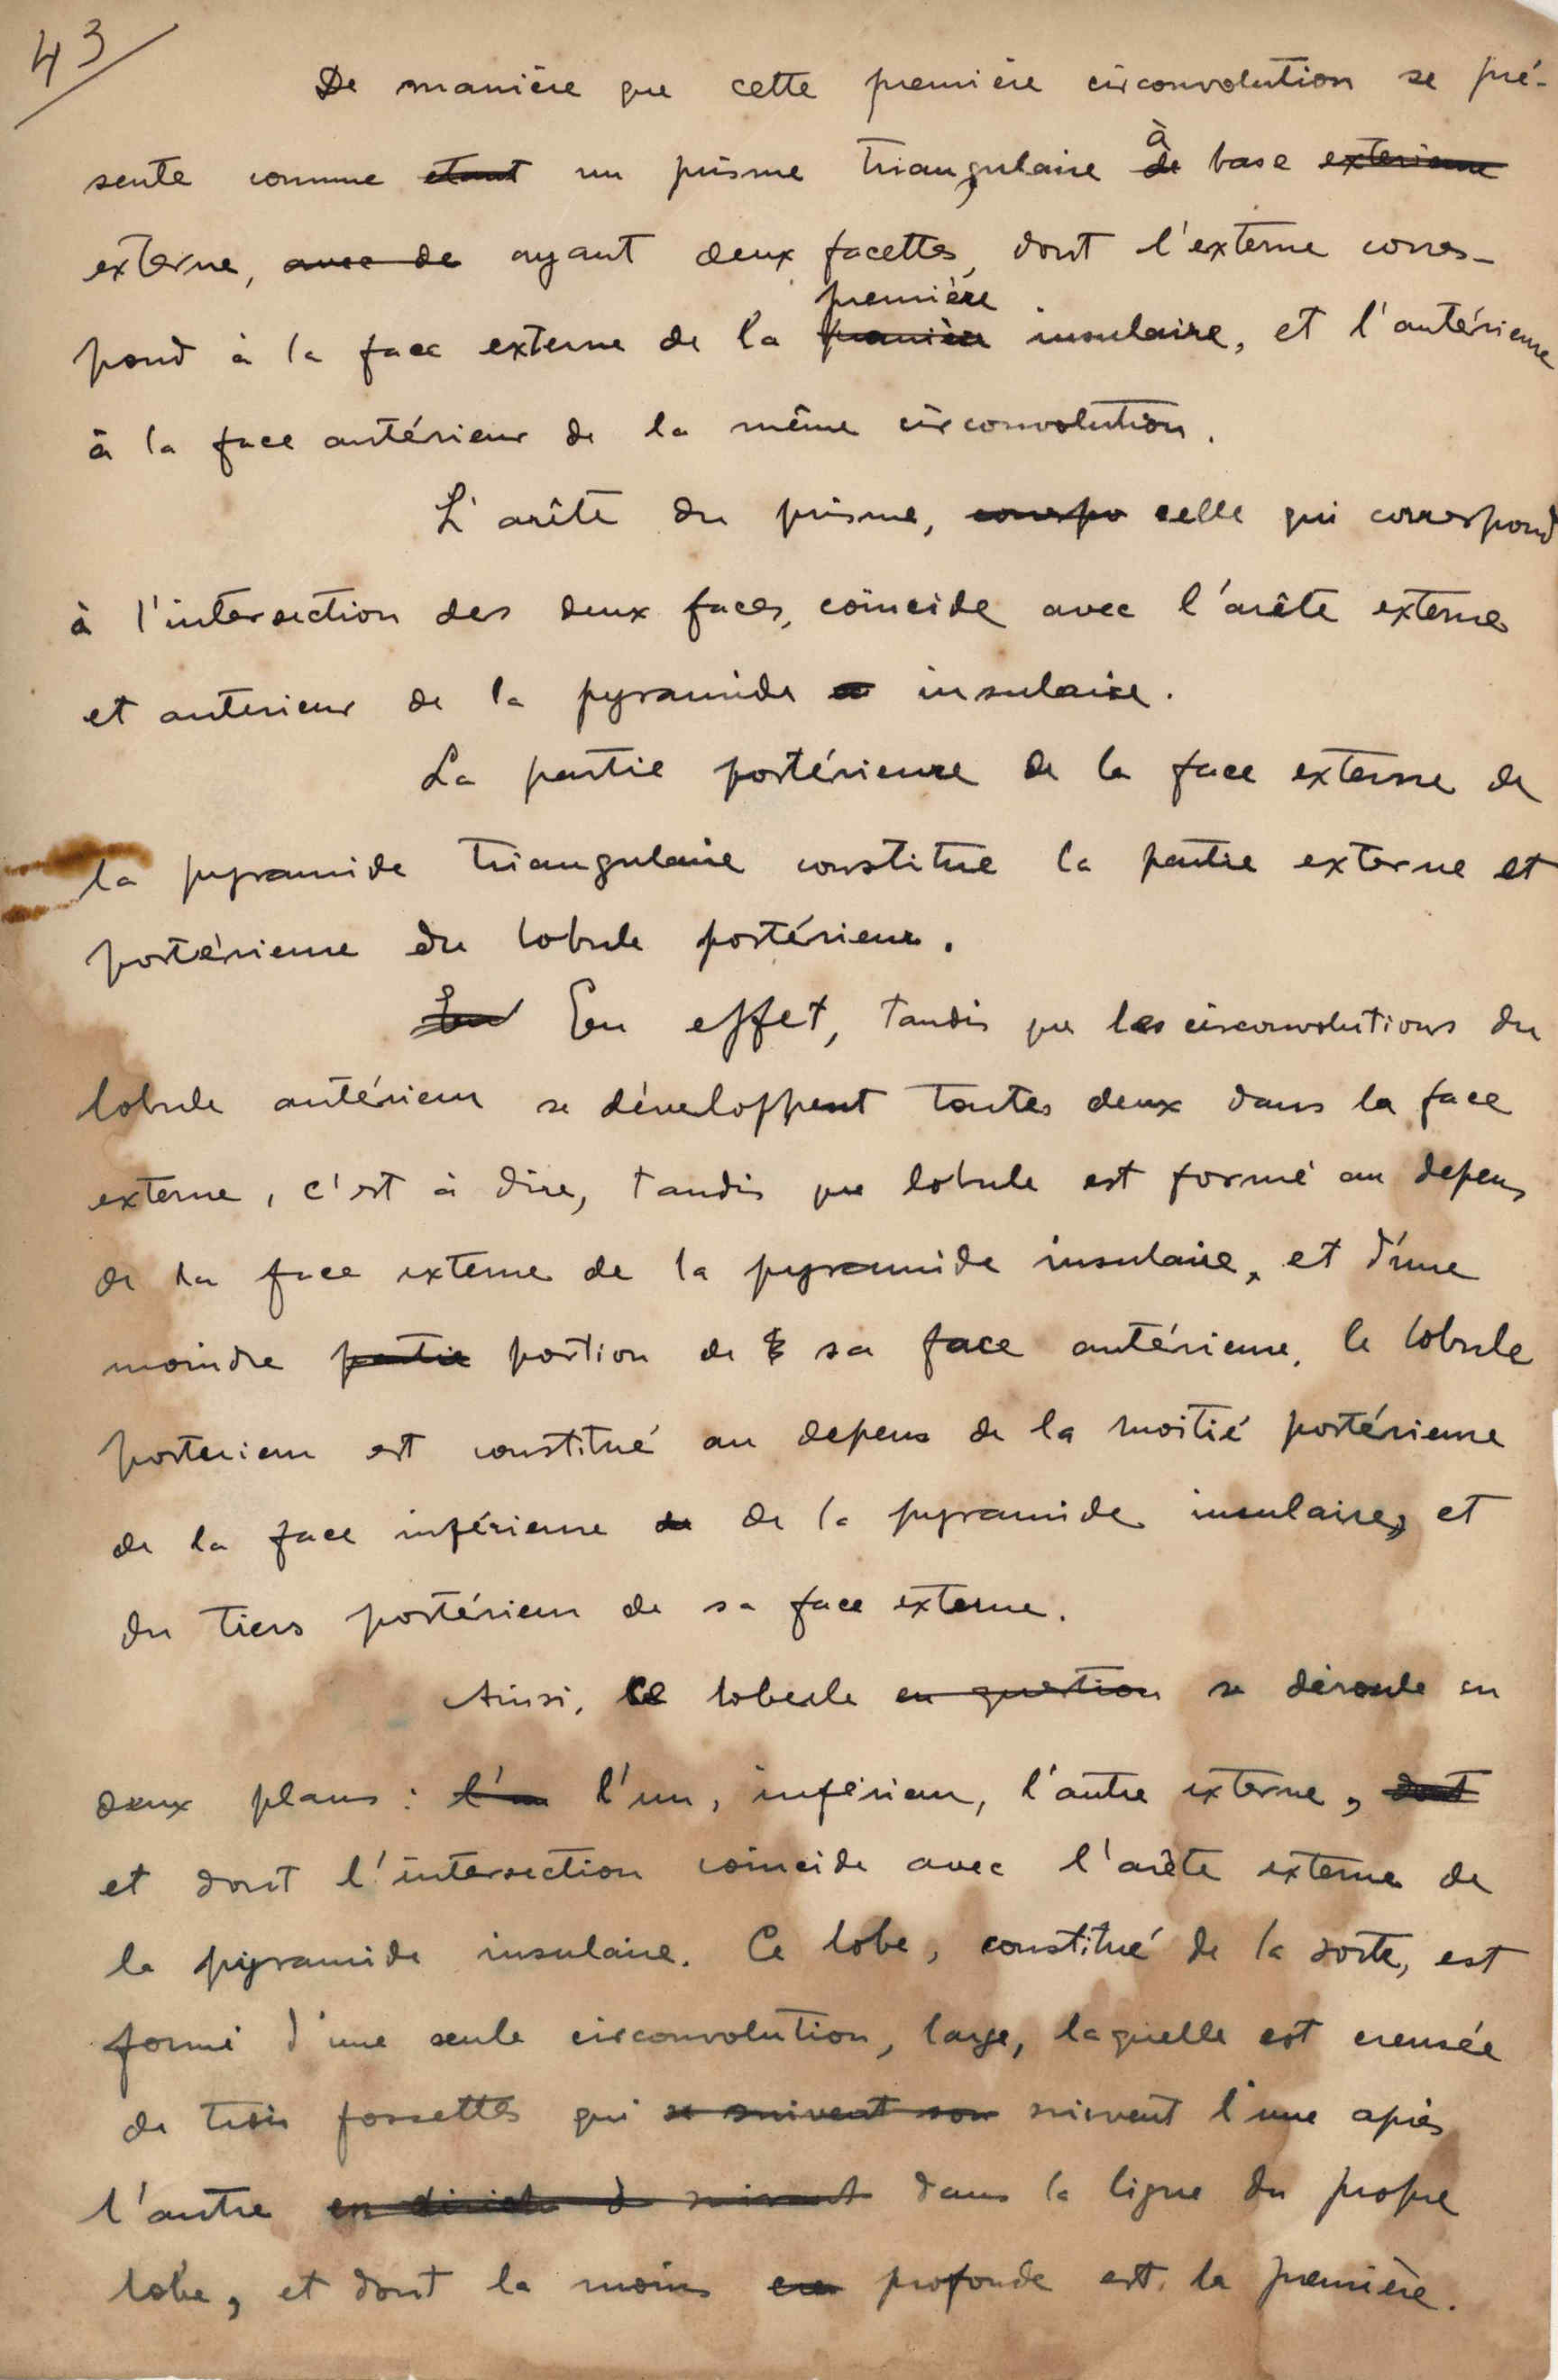 43
De manière que cette première circonvolution se pré-
sente comme etant un prisme triangulaire à de base exterieure
externe, avec de ayant deux facettes, dont l'externe corres-
pond à la face externe de la première première insulaire, et l'antérieure
à la face antérieur de la même circonvolution.
L'arête du prisme, correspo celle qui correspond
à l'intersection des deux faces, coincide avec l'arête externe
et anterieur de la pyramide insulaire.
La partie postérieure de la face externe de
la pyramide triangulaire constitue la partie externe et
postérieure du lobule postérieur.
En En effet, tandis que les circonvolutions du
lobule antérieur se développent toutes deux dans la face
externe, c'est à dire, tandis que lobule est formé au depens
de la face externe de la pyramide insulaire, et d'une
moindre partie portion de sa face antérieure, le lobule
posterieur est constitué au depens de la moitié postérieure
de la face inférieure de de la pyramide insulaire, et
du tiers postérieur de sa face externe.
Ainsi, le lobule en question se déroule en
deux plans : l'un l'un, inférieur, l'autre externe, dont
et dont l'intersection coincide avec l'arête externe de
la pyramide insulaire. Ce lobe, constitué de la sorte, est
formé d'une seule circonvolution, large, laquelle est creusée
de trois fossettes qui se suivent son suivent l'une après
l'autre en suivant dans la ligne du propre
lobe, et dont la moins creu profonde est la première.